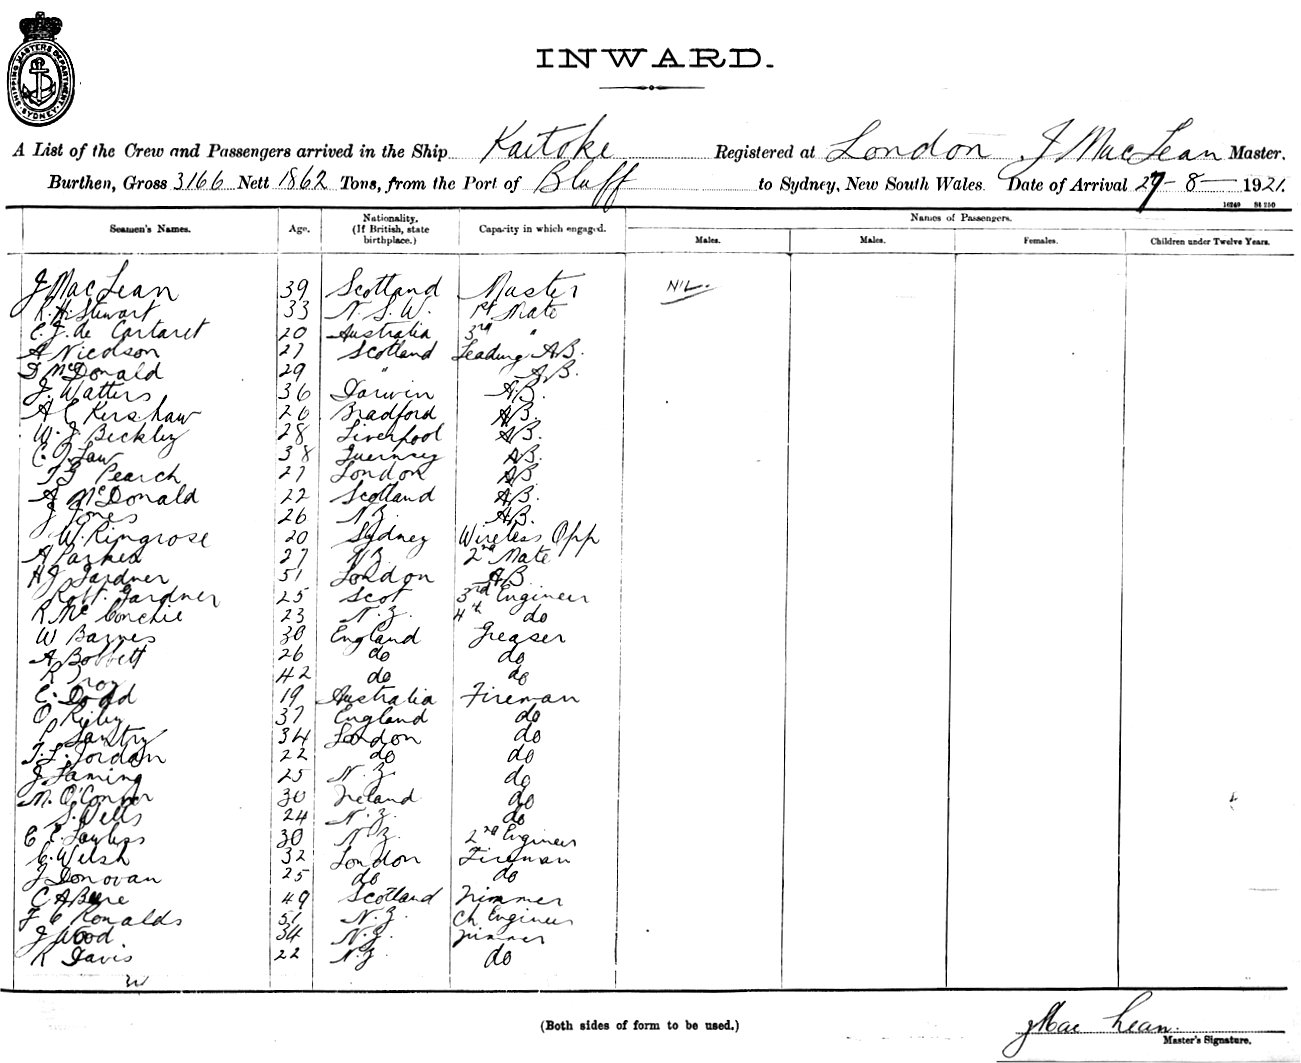 SHIPPING MASTERS DEPARTMENT SYDNEY
INWARD.
A List of the Crew and Passengers arrived in the Ship Kaitoke Registered at London J MacLean Master,
Burthen, Gross 3166 Nett 1862 Tons, from the Port of Bluff to Sydney, New South Wales. Date of Arrival 27-8-1921.
16249 84 250
Seamen's Names. Age. Nationality. (If British, state birthplace.) Capacity in which engaged. Names of Passengers.
Males. Males. Females. Children under Twelve Years.
J MacLean 39 Scotland Master NIL.
R. H. Stewart 33 N. S. W. 1st Mate
C. J. de Cartaret 20 Australia 3rd "
A Nicolson 27 Scotland Leading AB.
D McDonald 29 " AB.
J. Watters 36 Darwin AB.
A C Kershaw 26 Bradford AB.
W. J Beckley 28 Liverpool AB.
C. Law 38 Guernsey AB.
Pearch 27 London AB.
A McDonald 22 Scotland AB.
J Jones 26 N.Z. AB.
W. Ringrose 20 Sydney Wireless Opp
A Parkes 27 N.Z. 2nd Mate
H J Gardner 51 London AB
Robt. Gardner 25 Scot 3rd Engineer
R McConchie 23 N.Z. 4th do
W Barnes 30 England Greaser
A Bobbett 26 do do
R Troy 42 do do
C. Dodd 19 Australia Fireman
O Rilby 37 England do
P Santry 34 London do
T. L. Jordan 22 do do
J Laming 25 N.Z. do
M. O'Connor 30 Ireland do
S. Wells 24 N.Z. do
C E. Lawless 30 N.Z. 2nd Engineer
C. Welsh 32 London Fireman
J Donovan 25 do do
C A Beere 49 Scotland Trimmer
F C Ronalds 51 N.Z. Ch Engineer
J Wood 34 N.Z. Trimmer
R Davis 22 N.Z. do
(Both sides of form to be used.)
J Mac Lean.
Master's Signature.